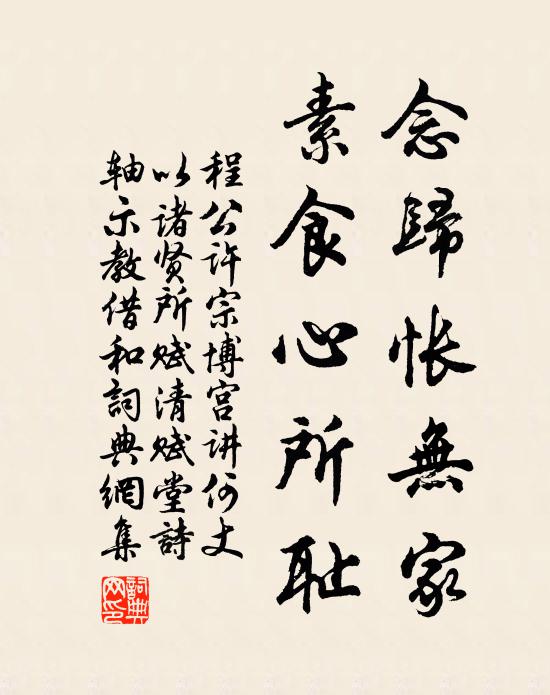 念歸怅無家
素食心所耻
程公许宗博宫讲何丈
以诸贤所赋清赋堂詩
轴示教借和詞典網集
詞典网印